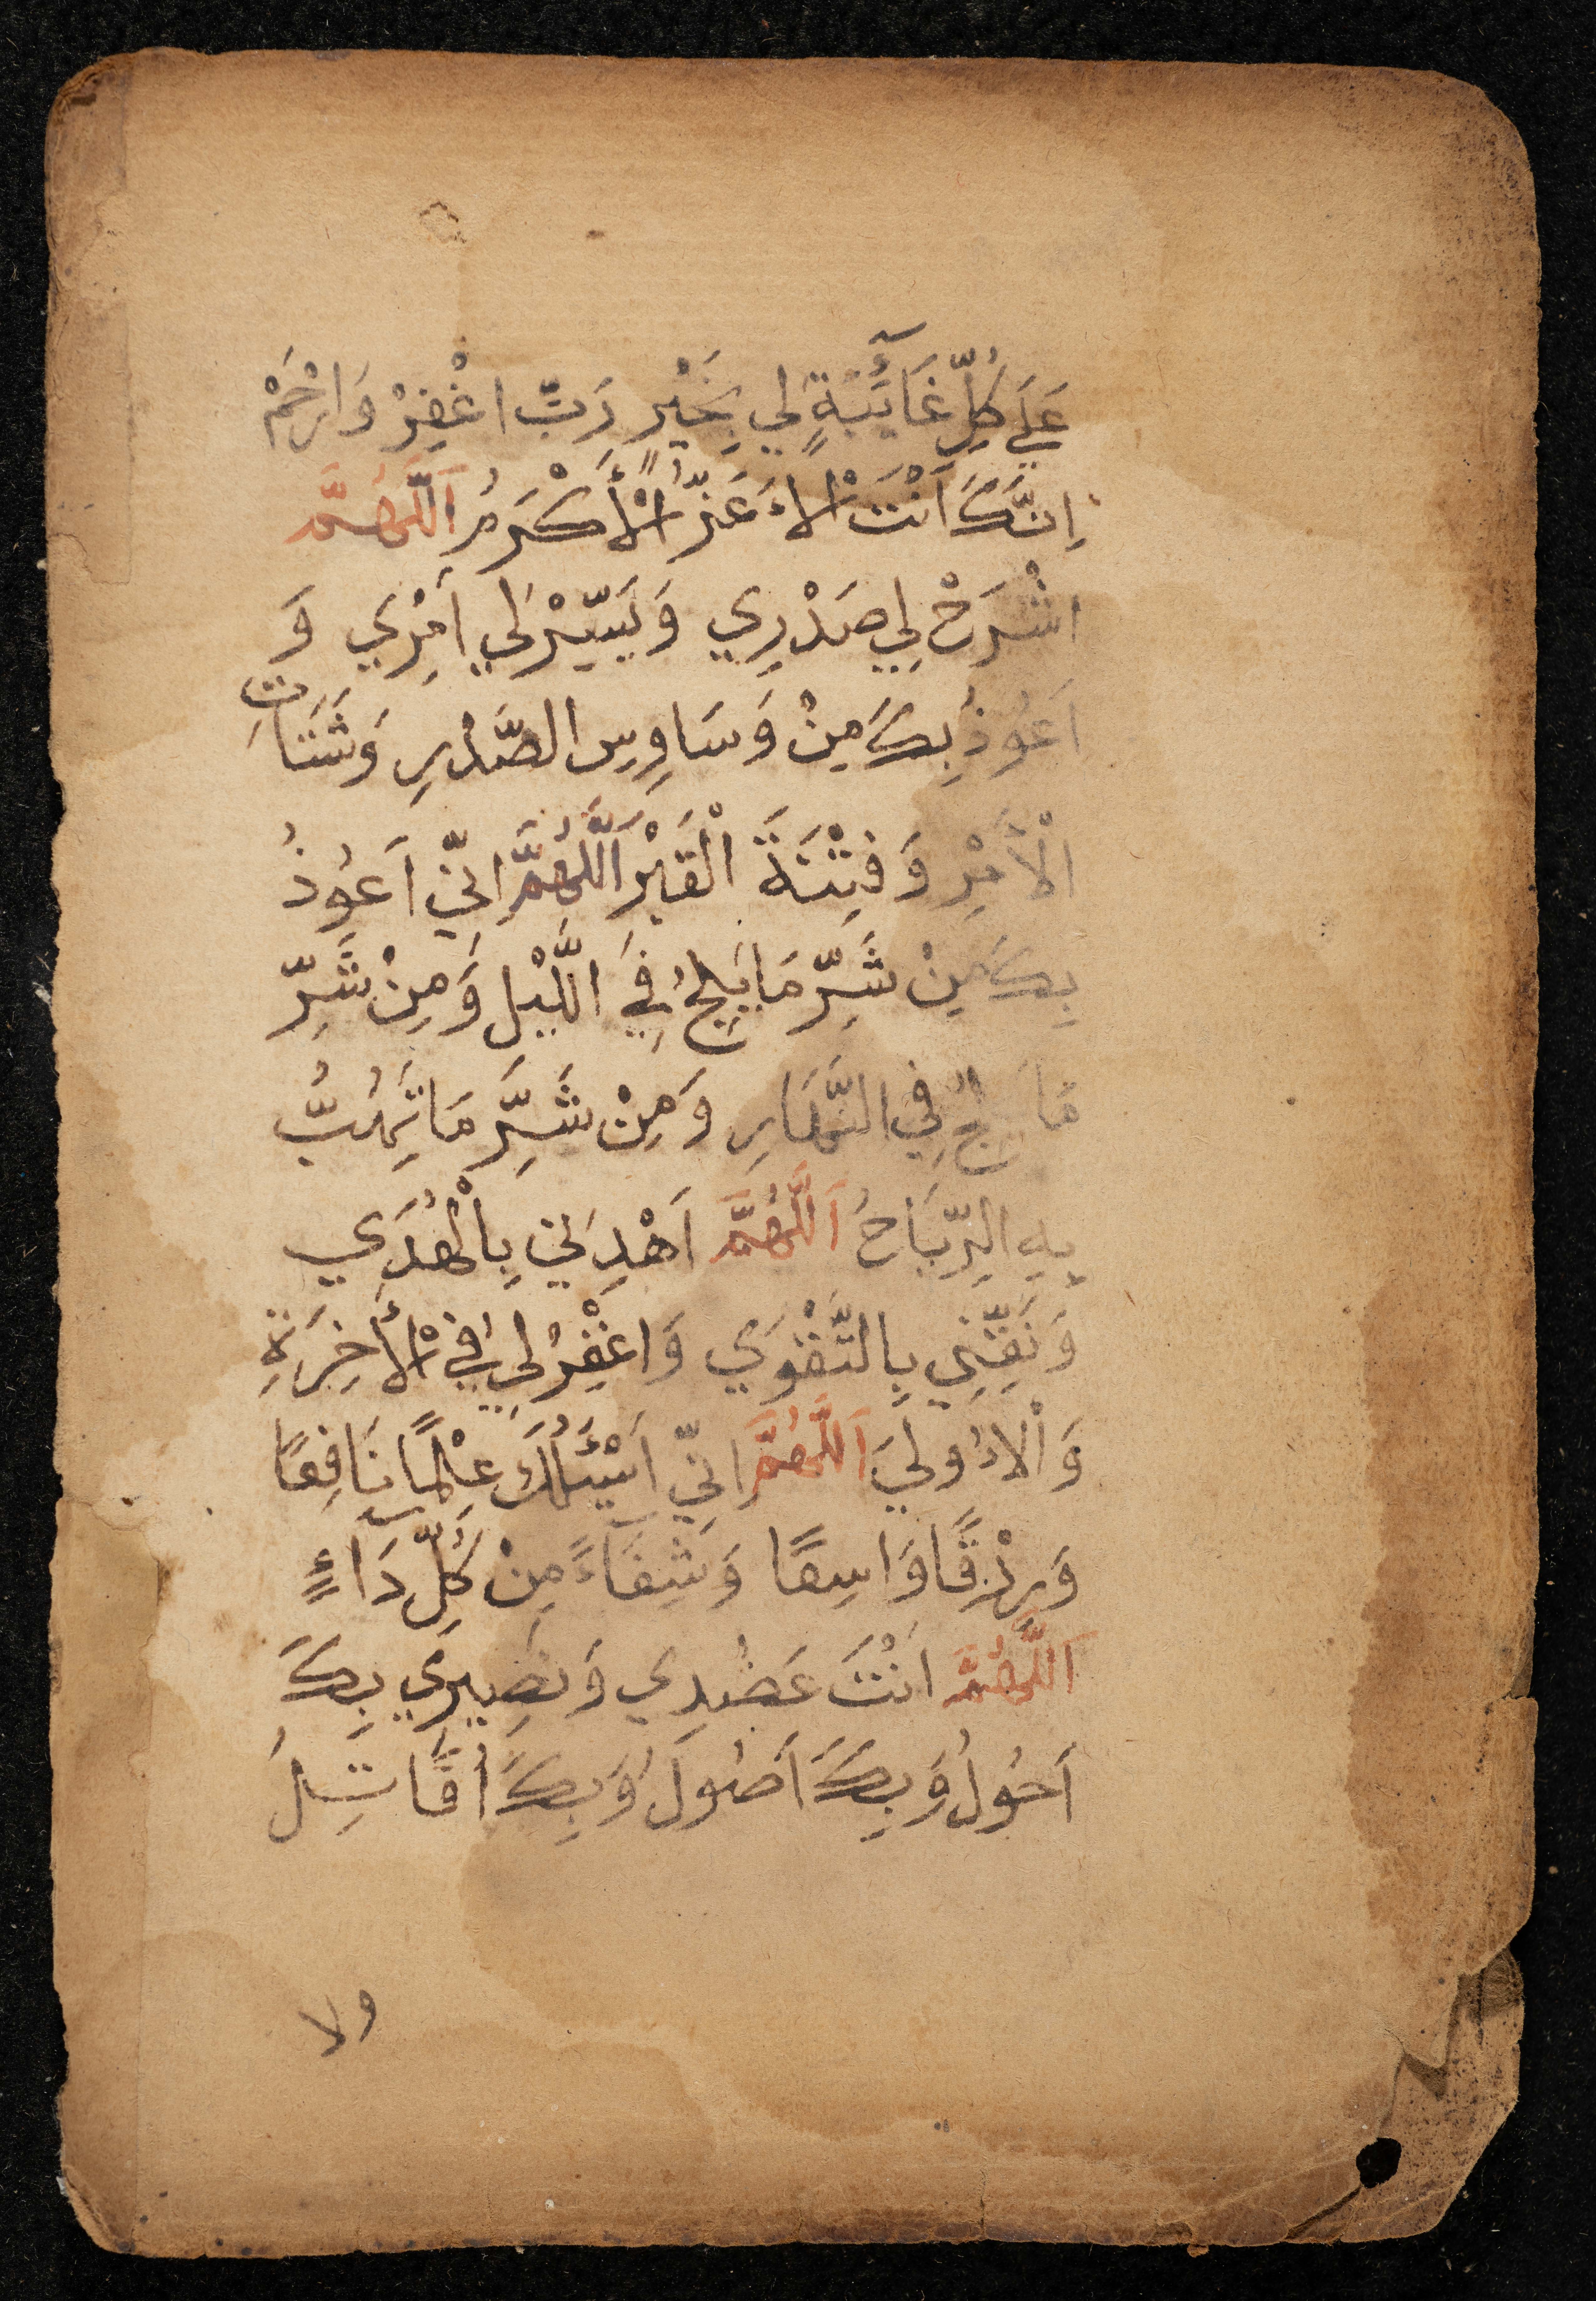 عَلَي كُلِّ غَآئِبَةٍ لِي بِخَيْرٍ رَبِّ اغْفِرْ وَارْحَمْ
اِنَّكَ اَنْتَ الْاَعَزُّ الْأَكْرَمُ اَللّٰهُمَّ
اشْرَحْ لِي صَدْرِي وَيَسِّرْ لِي اَمْرِي وَ
اَعُوذُ بِكَ مِنْ وَسَاوِسِ الصَّدْرِ وَشَتَاتِ
الْأَمْرِ وَفِتْنَةَ الْقَبْرِ اَللّٰهُمَّ اِنِّي اَعُوذُ
بِكَ مِنْ شَرِّ مَا يَلِجُ فِي اللَّيْلِ وَمِنْ شَرِّ
مَا يَلِجُ فِي النَّهَارِ وَمِنْ شَرِّ مَا تَهُبُّ
بِهِ الرِّيَاحُ اَللّٰهُمَّ اَهْدِنِي بِالْهُدَي
وَنَقِّنِي بِالتَّقْوَي وَاغْفِرْ لِي فِي الْأَخِرَةِ
وَالْاُولَي اَللّٰهُمَّ اِنِّي اَسْئَلُكَ عِلْمًا نَافِعًا
وَرِزْقًا وَاسِعًا وَشِفَآءً مِنْ كُلِّ دَآءٍ
اَللّٰهُمَّ اَنْتَ عَضُدِي وَنَصِيرِي بِكَ
اَحُولُ وَبِكَ اَصُولُ وَبِكَ اُقَاتِلُ
ولا